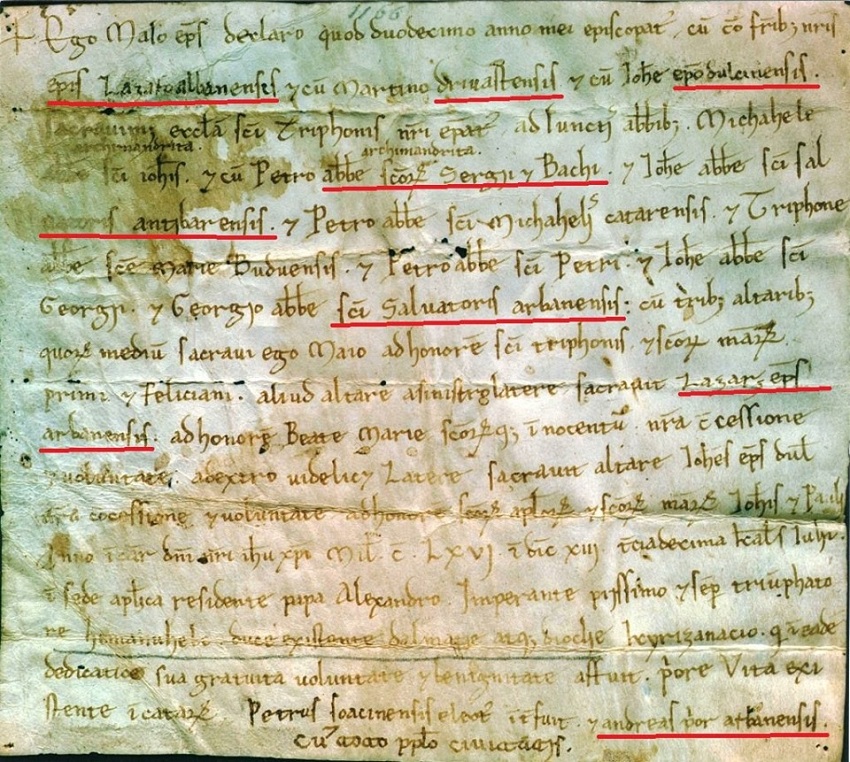 1166
+ Ego Maio ep̄s declaro quod duodecimo anno mei episcopat᾽ cū cō fr̄ib; nr̄is
ep̄is Lazaro albanensis ⁊ cū Martino drivastensis ⁊ cū Ioh̄e ep̄o dulcinensis.
sacravimꝰ eccl̄a sc̄i Triphonis nr̄i ep̄at᾽ adiunctis abb̄ib; Michahele
archimandrita. archimandrita.
abb̄e sc̄i ioh̄is. ⁊ cū Petro abb̄e sc̄oꝝ Sergii ⁊ Bachi. ⁊ Ioh̄e abb̄e sc̄i sal
vatoris antibarensis. ⁊ Petro abb̄e sc̄i Michaheli᾽s catarensis. ⁊ Triphone
abb̄e sc̄e Marie Buduensis. ⁊ Petro abb̄e sc̄i Petri. ⁊ Ioh̄e abb̄e sc̄i
Georgii. ⁊ Georgio abb̄e sc̄i Salvatoris arbanensis: cū trib; altarib;
quoꝝ mediū sacravi ego Maio ad honorē sc̄i triphonis. ⁊ sc̄oꝝ mar̄ꝝ
primi ⁊ feliciani. aliud altare a sinistro latere sacravit Lazarꝰ ep̄s
arbanensis. ad honorē Beate Marie sc̄oꝝ q; īnocentū. nr̄a c̄cessione
⁊ voluntate. a dextro videlicet Latere sacravit altare Ioh̄es ep̄s dul̄
nr̄a cōcessione ⁊ voluntate ad honorē sc̄oꝝ ap̄loꝝ ⁊ sc̄oꝝ mar̄ꝝ Ioh̄is ⁊ Pauli
Anno īcar̄ dn̄i nr̄i ih̄u xp̄i Mil̄. C̄. LXVI īdic̄ XIII. decima kal̄s Iulii.
ī sede ap̄lica residente papa Alexandro. Imperante piissimo ⁊ sēp triūphato
re hemanuhele duce existente dalmatie atq; dioclie kyrizanacio. q̄ ī eadē
dedicatiōe sua gratuita voluntate ⁊ benignitate affuit. p̄ore Vita exi
stente ī cataꝝ. Petrus soacinensis elect᾽ īt̄fuit. ⁊ andreas p̄or arbanensis.
cū toto pp̄lo civitatis.